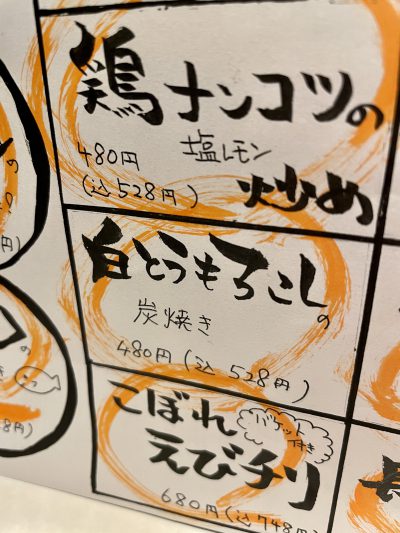 鶏ナンコツの
塩レモン
炒め
480円
(込528円)
白とうもろこしの
炭焼き
480円(込 528円)
こぼれ
えびチリ
バケット
付き
680円(込748円)